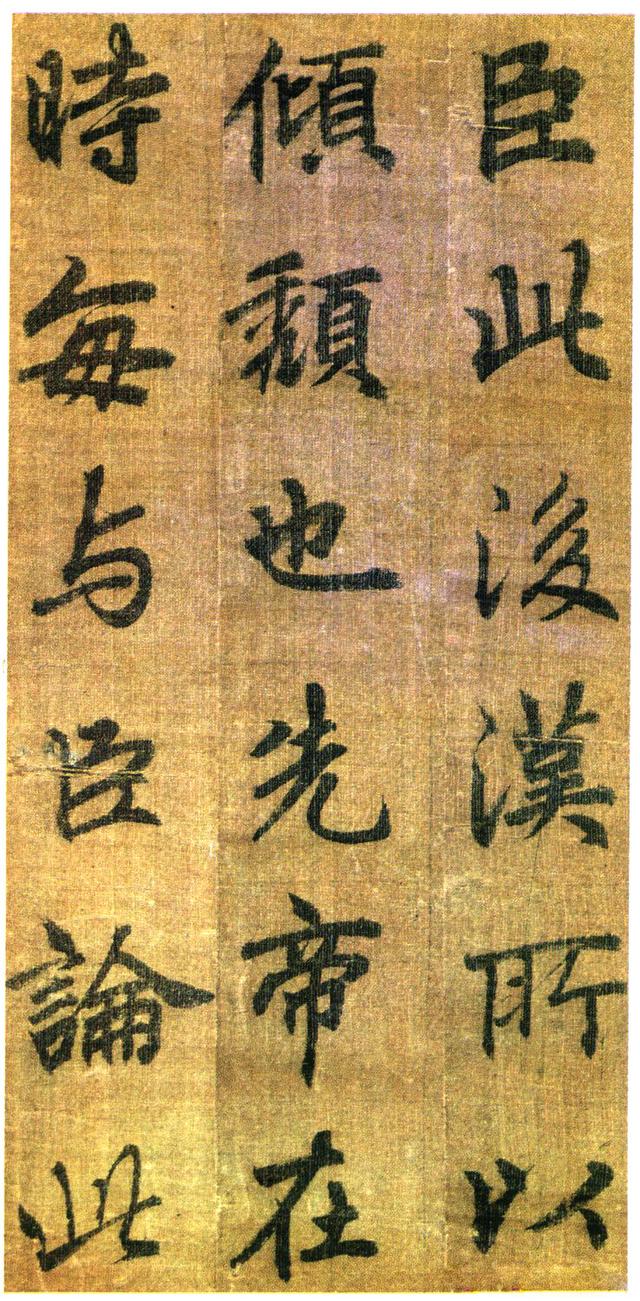 臣此後漢所以
傾頹也先帝在
時每与臣論此